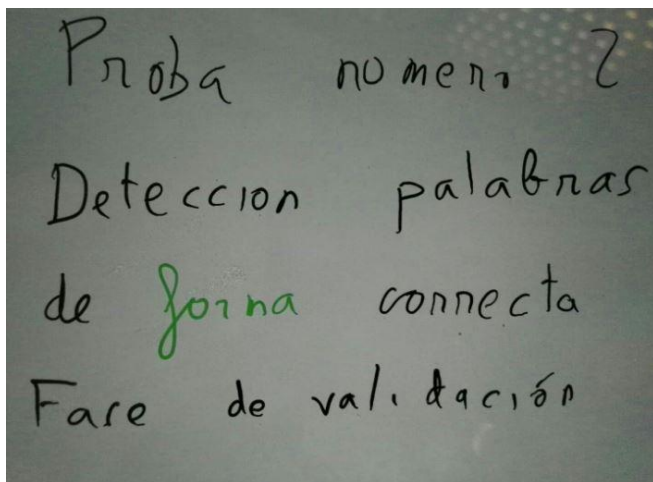 Proba numero 2
Deteccion palabras
de forma correcta
Fase de validación